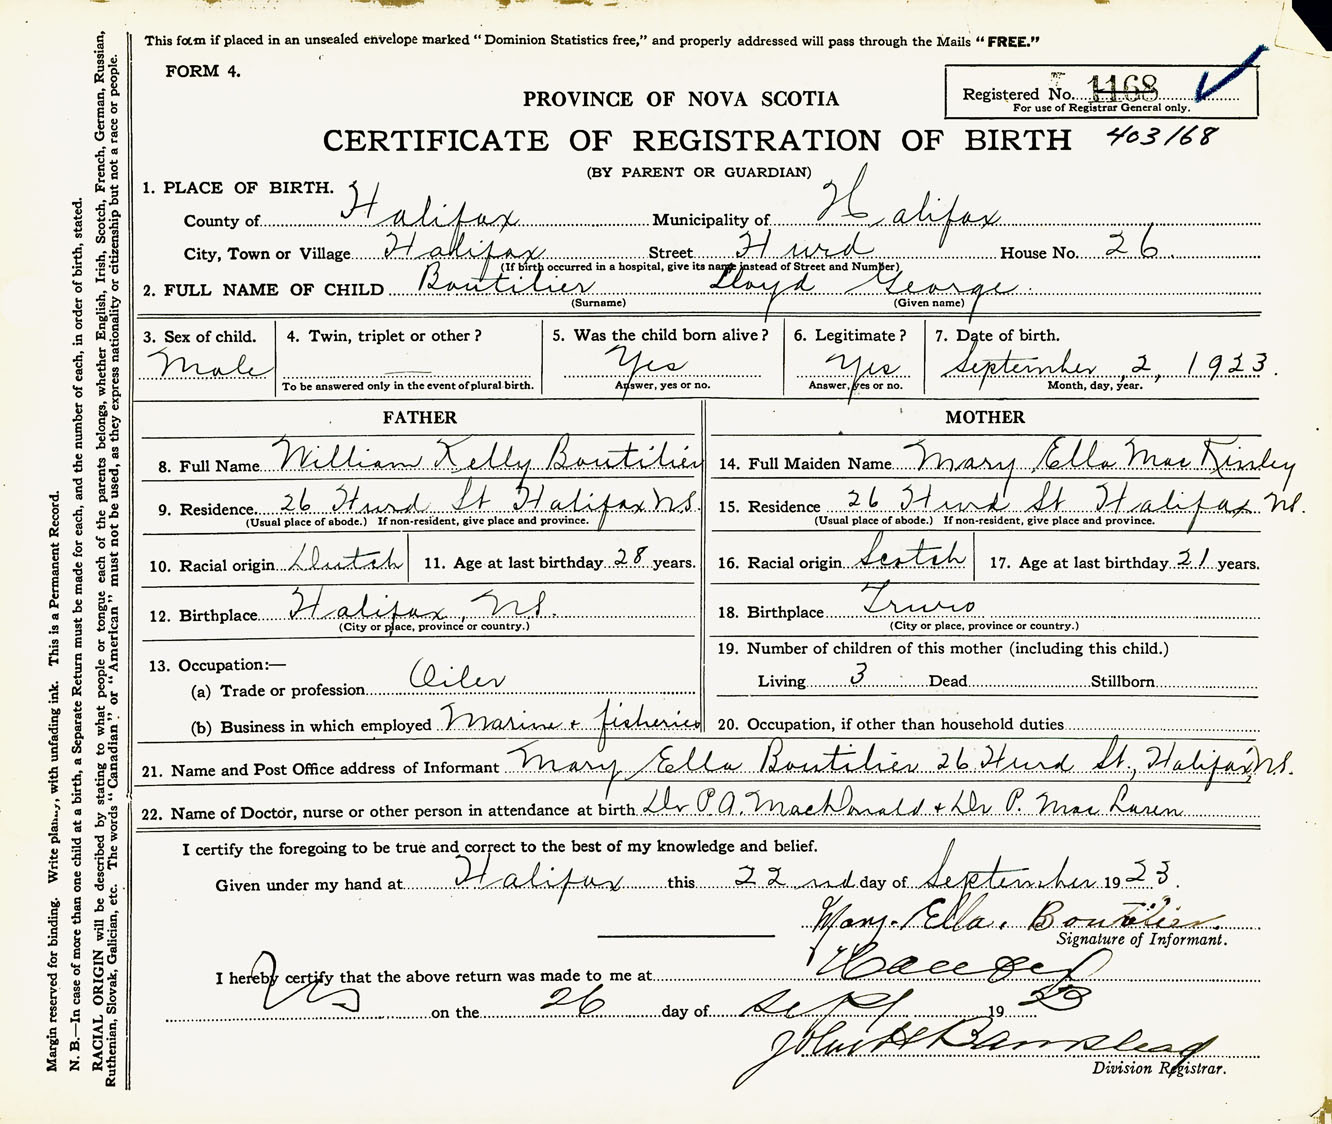 This form if placed in an unsealed envelope marked "Dominion Statistics free," and properly addressed will pass through the Mails "FREE."
FORM 4.
Registered No. 1168
For use of Registrar General only.
PROVINCE OF NOVA SCOTIA
CERTIFICATE OF REGISTRATION OF BIRTH 403168
(BY PARENT OR GUARDIAN)
1. PLACE OF BIRTH.
County of Halifax Municipality of Halifax
City, Town or Village Halifax Street Hurd House No. 26.
(If birth occurred in a hospital, give its name instead of Street and Number)
2. FULL NAME OF CHILD Boutilier Lloyd George.
(Surname) (Given name)
3. Sex of child. 4. Twin, triplet or other? 5. Was the child born alive? 6. Legitimate? 7. Date of birth.
Male — Yes Yes September 2, 1923.
To be answered only in the event of plural birth. Answer, yes or no. Answer, yes or no. Month, day, year.
FATHER MOTHER
8. Full Name William Kelly Boutilier 14. Full Maiden Name Mary Ella MacKinley
9. Residence 26 Hurd St Halifax N.S. 15. Residence 26 Hurd St Halifax N.S.
(Usual place of abode.) If non-resident, give place and province. (Usual place of abode.) If non-resident, give place and province.
10. Racial origin Dutch 11. Age at last birthday 28 years. 16. Racial origin Scotch 17. Age at last birthday 21 years.
12. Birthplace Halifax, N.S. 18. Birthplace Truro
(City or place, province or country.) (City or place, province or country.)
13. Occupation:— 19. Number of children of this mother (including this child.)
(a) Trade or profession Oiler Living 3 Dead Stillborn
(b) Business in which employed Marine + fisheries 20. Occupation, if other than household duties
21. Name and Post Office address of Informant Mary Ella Boutilier 26 Hurd St., Halifax N.S.
22. Name of Doctor, nurse or other person in attendance at birth Dr P.A. MacDonald + Dr P. MacLaren
I certify the foregoing to be true and correct to the best of my knowledge and belief.
Given under my hand at Halifax this 22nd day of September 1923.
Mary. Ella. Boutilier.
Signature of Informant.
I hereby certify that the above return was made to me at Halifax
NS on the 26 day of Sept 1923
John H Barnstead
Division Registrar.
Margin reserved for binding. Write plainly, with unfading ink. This is a Permanent Record.
N. B.—In case of more than one child at a birth, a Separate Return must be made for each, and the number of each, in order of birth, stated.
RACIAL ORIGIN will be described by stating to what people or tongue each of the parents belongs, whether English, Irish, Scotch, French, German, Russian,
Ruthenian, Slovak, Galician, etc. The words "Canadian" or "American" must not be used, as they express nationality or citizenship but not a race or people.